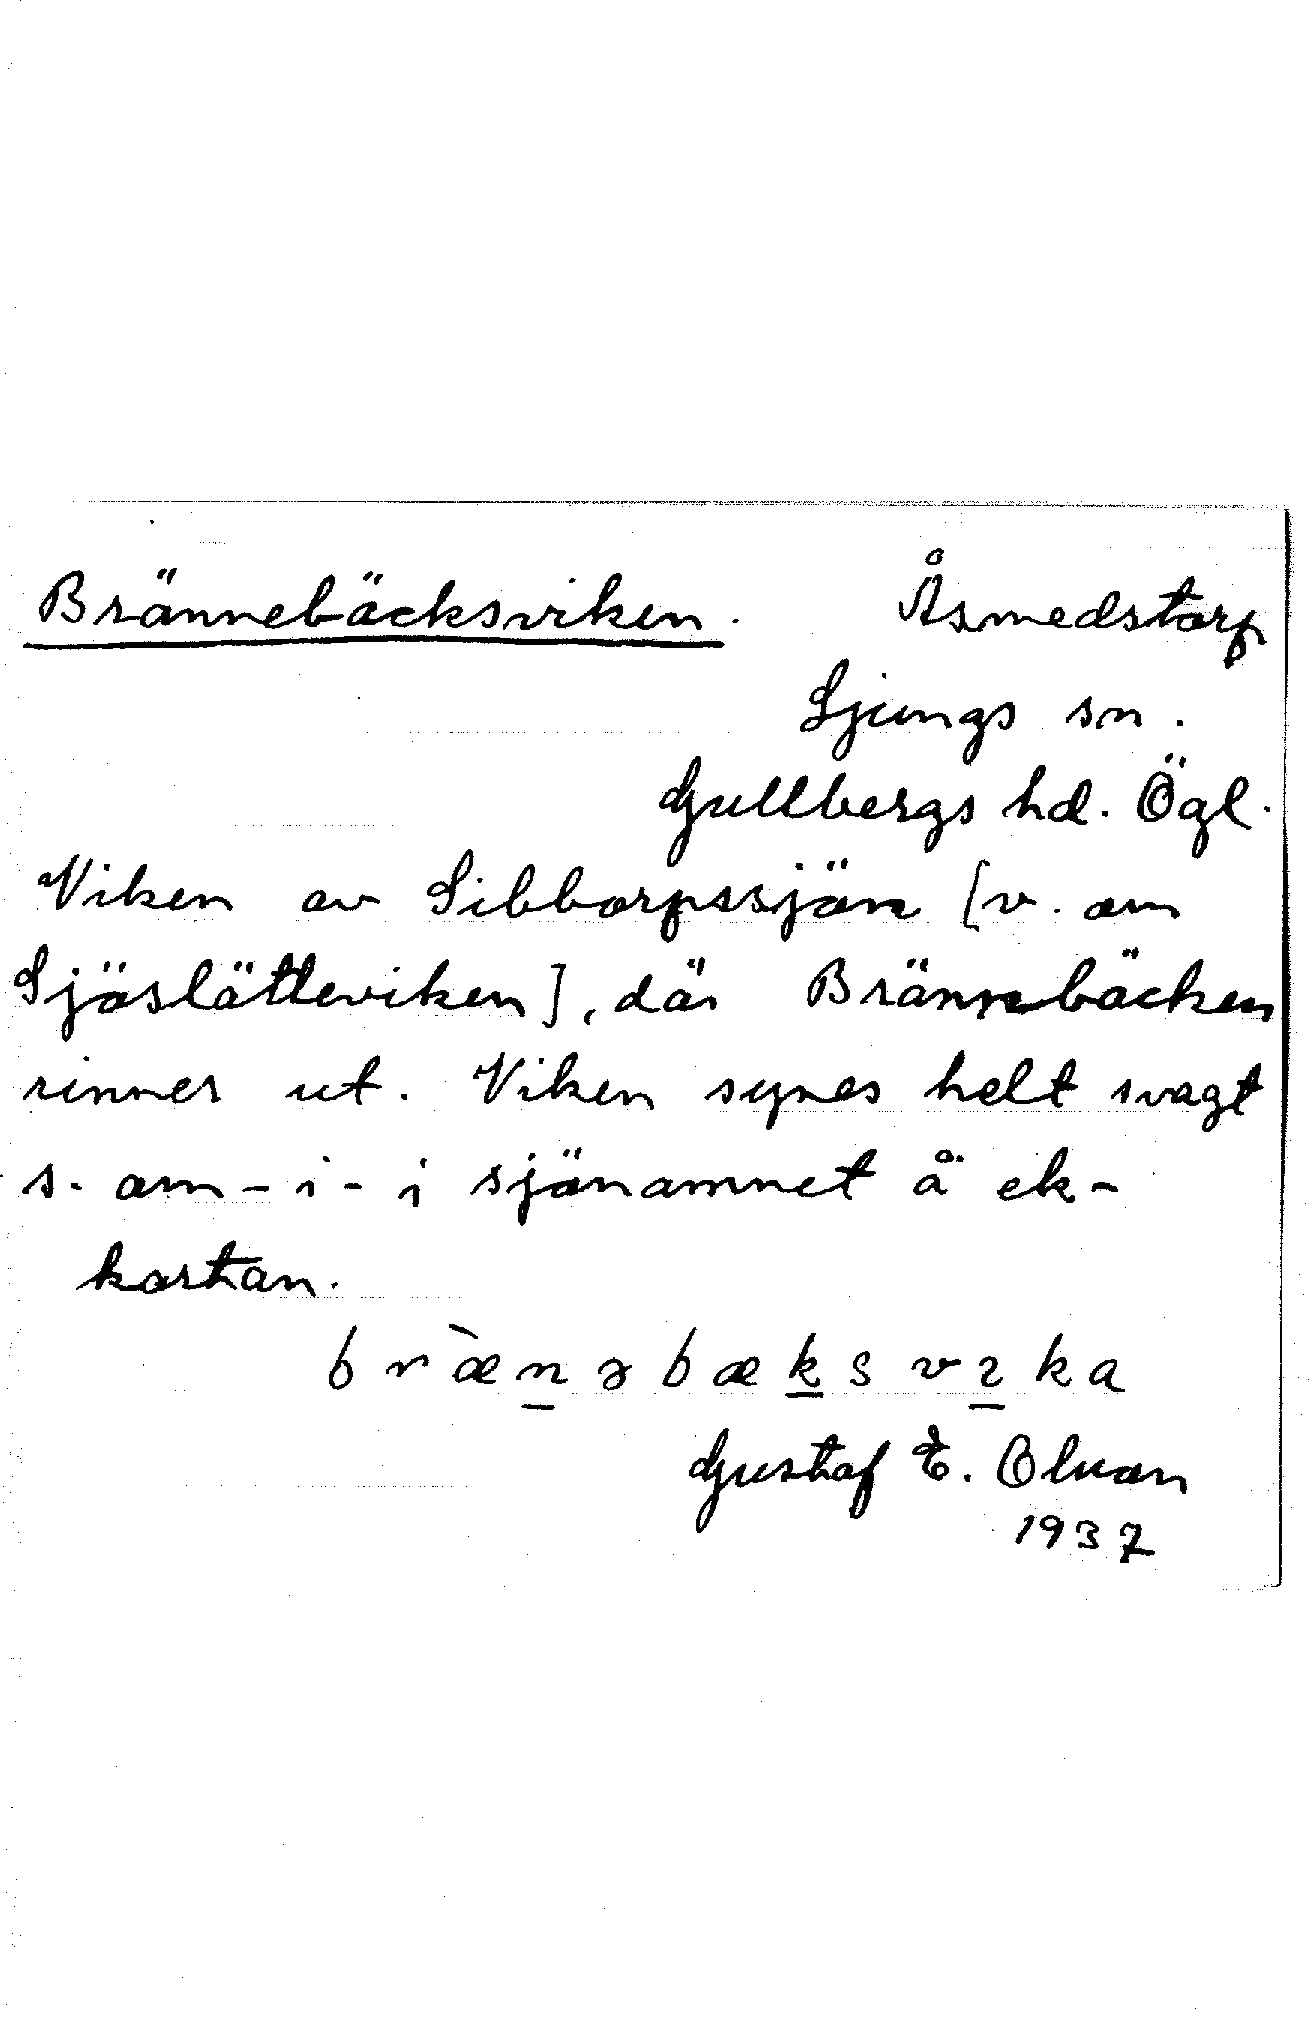 Brännebäcksviken. Åsmedstorp
Ljungs sn.
Gullbergs hd. Ögl.
Viken av Sibborpssjön [v. om
Sjöslätteviken], där Brännbäcken
rinner ut. Viken synes helt svagt
s. om - i - i sjönamnet å ek-
kartan.
bræ̀n̠əbæk̠svɩ̠ka
Gustaf E. Olson
1937